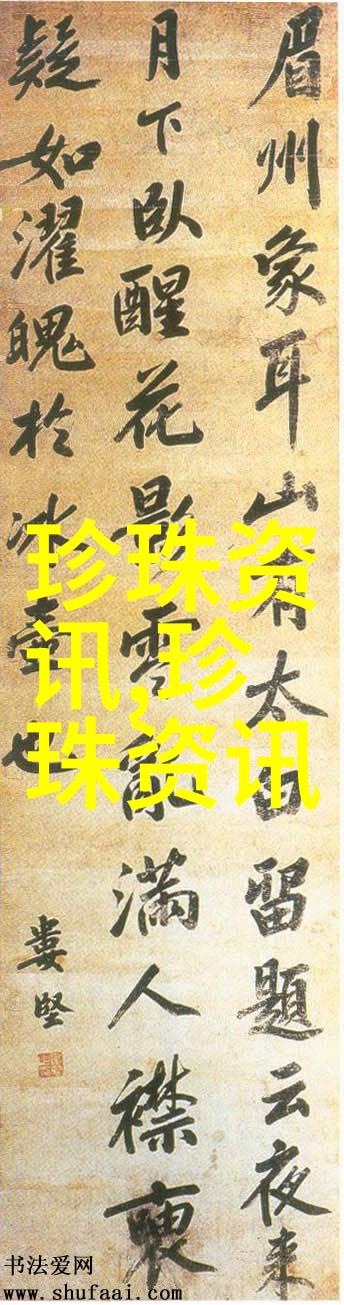 眉州象耳山有太白留題云夜来
月下臥醒花影零亂滿人襟
疑如濯魄於冰壺也
婁堅
珍珠资
讯,珍
珠资讯
书法爱网
www.shufaai.com